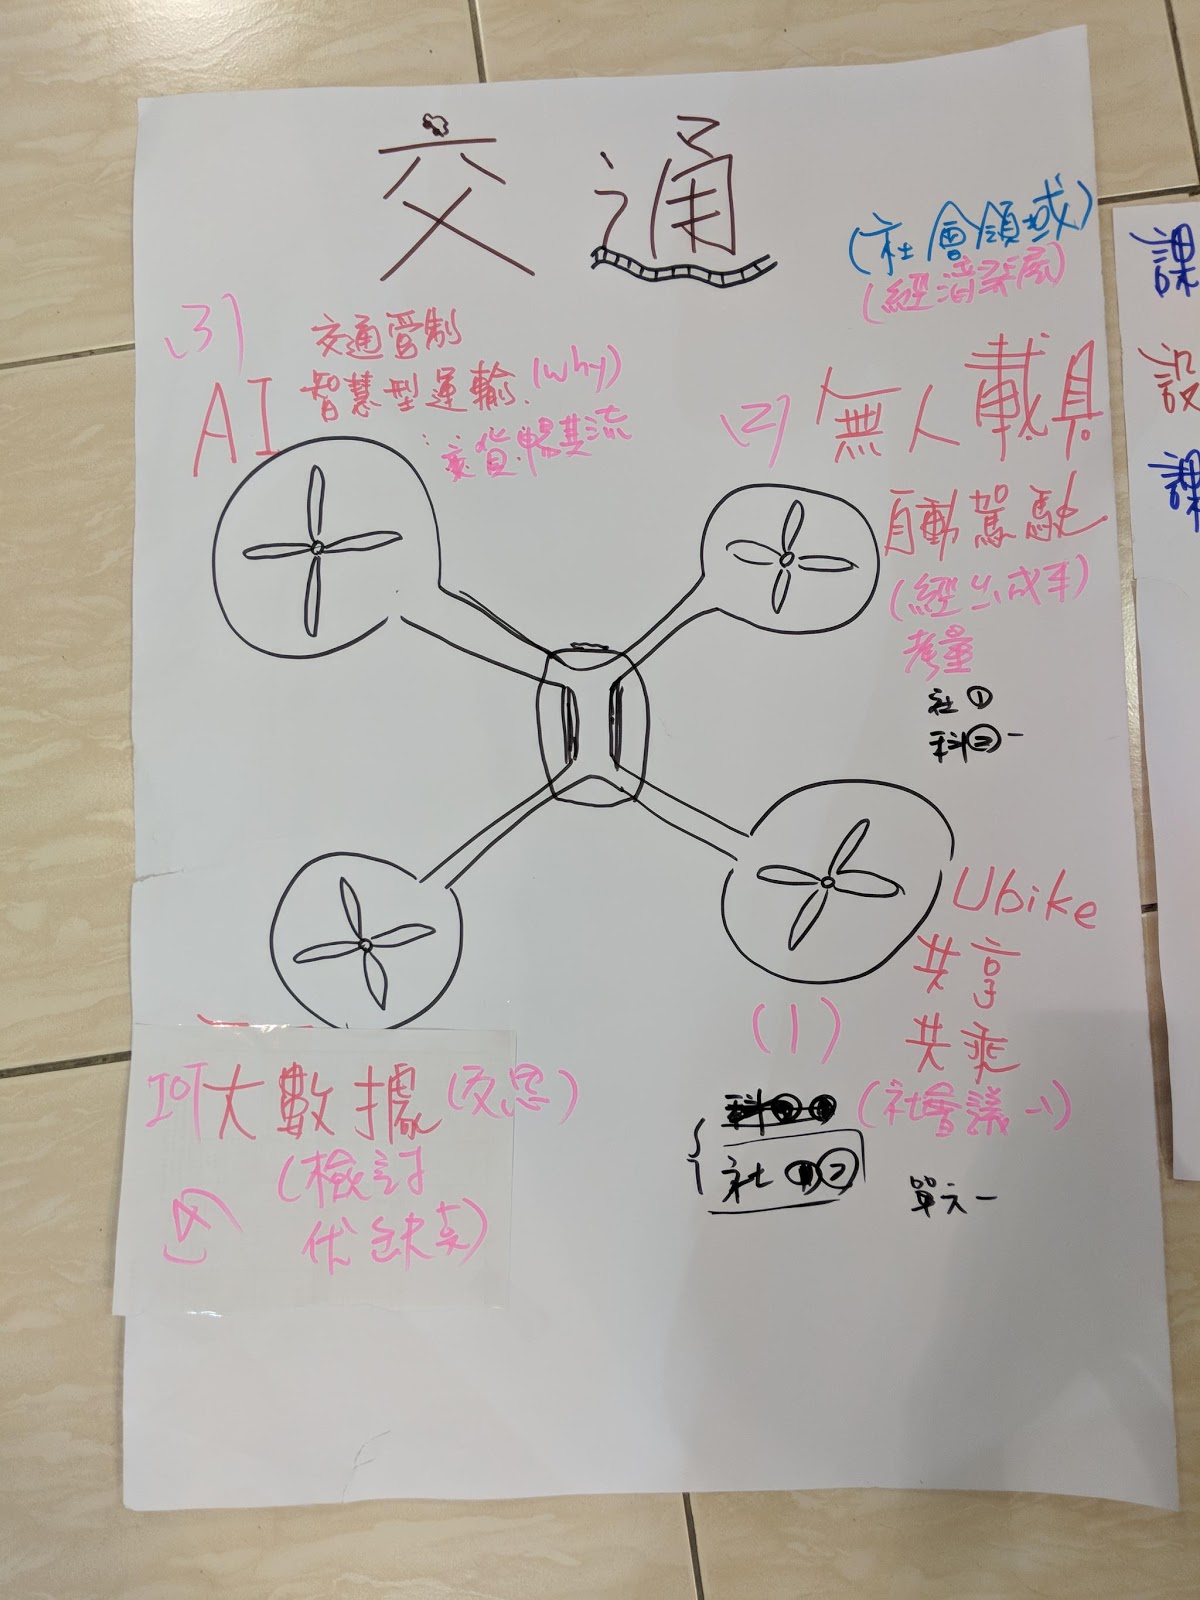 交通
(社會領域)
(經濟深層)
(3)
AI
交通管制
智慧型運輸(why)
貨暢其流
(2)
無人載具
自動駕駛
(經 成本)
考量
社①
科②一
Ubike
共享
共乘
(社會議一)
(1)
社②
單元一
IOT大數據(反思)
(檢討
優缺點)
(4)
課
設
課